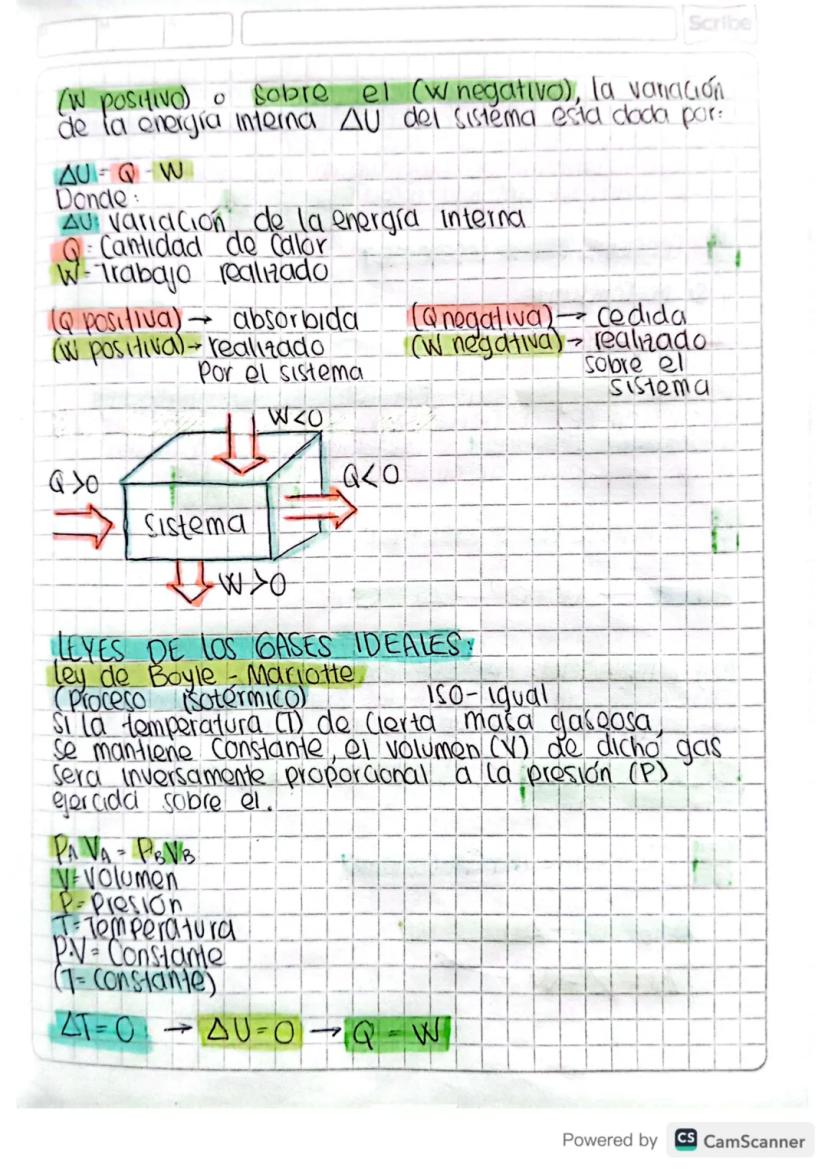 Scribe
(W positivo) o sobre el (W negativo), la variación
de la energía interna ΔU del sistema esta dada por:
ΔU = Q - W
Donde:
ΔU: variación de la energía interna
Q: Cantidad de Calor
W- Trabajo realizado
(Q positiva) → absorbida
(W positiva) → realizado
Por el sistema
(Q negativa) → cedida
(W negativa) → realizado
sobre el
sistema
W<0
Q>0
Q<0
Sistema
W>0
LEYES DE LOS GASES IDEALES:
ley de Boyle - Mariotte
(Proceso isotérmico) ISO- igual
Si la temperatura (T) de cierta masa gaseosa,
se mantiene constante, el volumen (V) de dicho gas
sera inversamente proporcional a la presión (P)
ejercida sobre el.
PA VA = PB VB
V= Volumen
P= Presión
T= Temperatura
P.V = Constante
(T= constante)
ΔT = 0 → ΔU = 0 → Q = W
Powered by CS CamScanner